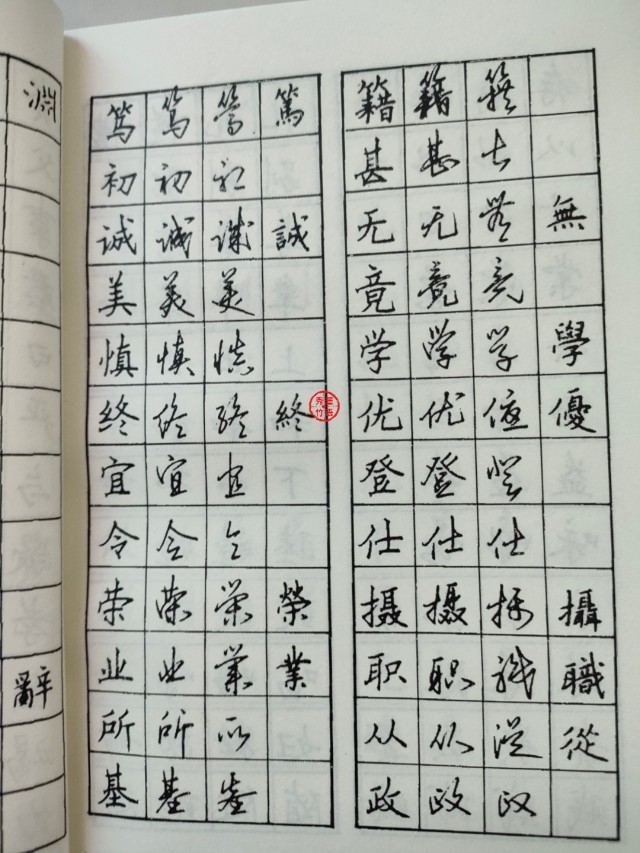 淵
辭
笃 笃 篤 篤
初 初 初
诚 诚 誠 誠
美 美 美
慎 慎 慎
终 终 終 終
宜 宜 宜
令 令 令
荣 荣 榮 榮
业 业 業 業
所 所 所
基 基 基
籍 籍 籍
甚 甚 甚
无 无 無 無
竟 竟 竟
学 学 学 學
优 优 優 優
登 登 登
仕 仕 仕
摄 摄 攝 攝
职 职 職 職
从 从 從 從
政 政 政